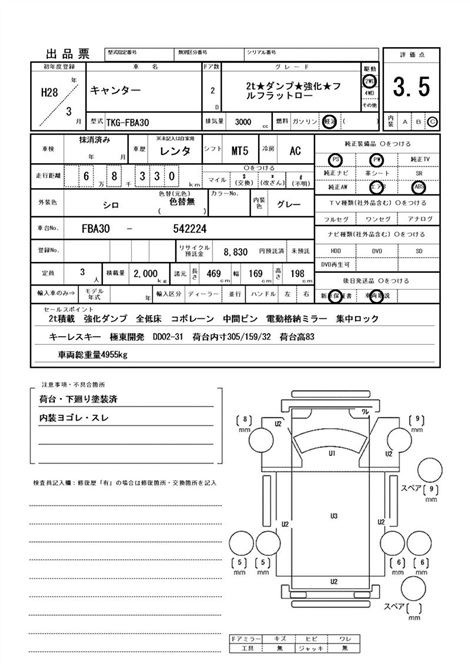 出品票 型式指定番号 類別区分番号 シリアル番号
初年度登録 車名 ドア数 グレード 駆動 評価点
H28年 3月 キャンター 2D 2t★ダンプ★強化★フルフラットロー 2WD 4WD その他 3.5
型式 TKG-FBA30 排気量 3000cc 燃料 ガソリン 軽油 ( ) 内装 A B C
車検 抹消済み 車歴 ※未記入は自家用 レンタ シフト MT5 冷房 AC 純正装備品 〇をつける
走行距離 6万8千330km マイル $(交換) *(改ざん) #(不明) 〇をつける
PS PW 純正TV
純正ナビ 革シート SR
純正AW エアB ABS
外装色 シロ 色替(元色) 色替無 ( ) カラーNo. 内装色 グレー
TV種類(社外品含む) 〇をつける
フルセグ ワンセグ アナログ
車台No. FBA30 - 542224
ナビ種類(社外品含む) 〇をつける
登録No. リサイクル預託金 8,830 円預託済 未預託
HDD DVD SD
DVD再生可
定員 3人 積載量 2,000kg 諸元 長さ 469cm 幅 169cm 高さ 198cm
後日発送品 〇をつける
輸入車のみ⇒ モデル年式 年 輸入区分 ディーラー 並行 ハンドル 左 右
新車保証書 車両取説
セールスポイント
2t積載 強化ダンプ 全低床 コボレーン 中間ピン 電動格納ミラー 集中ロック
キーレスキー 極東開発 DD02-31 荷台内寸305/159/32 荷台高83
車両総重量4955kg
注意事項・不具合箇所
荷台・下廻り塗装済
内装ヨゴレ・スレ
検査員記入欄:修復歴「有」の場合は修復箇所・交換箇所を記入
(8) mm U2 U1 U2 (9) mm
スペア (9) mm
U2 U3 U2
(5) mm (5) mm (6) mm (6) mm
U2
スペア ( ) mm
Fドアミラー キズ ヒビ ワレ
工具 無 ジャッキ 無